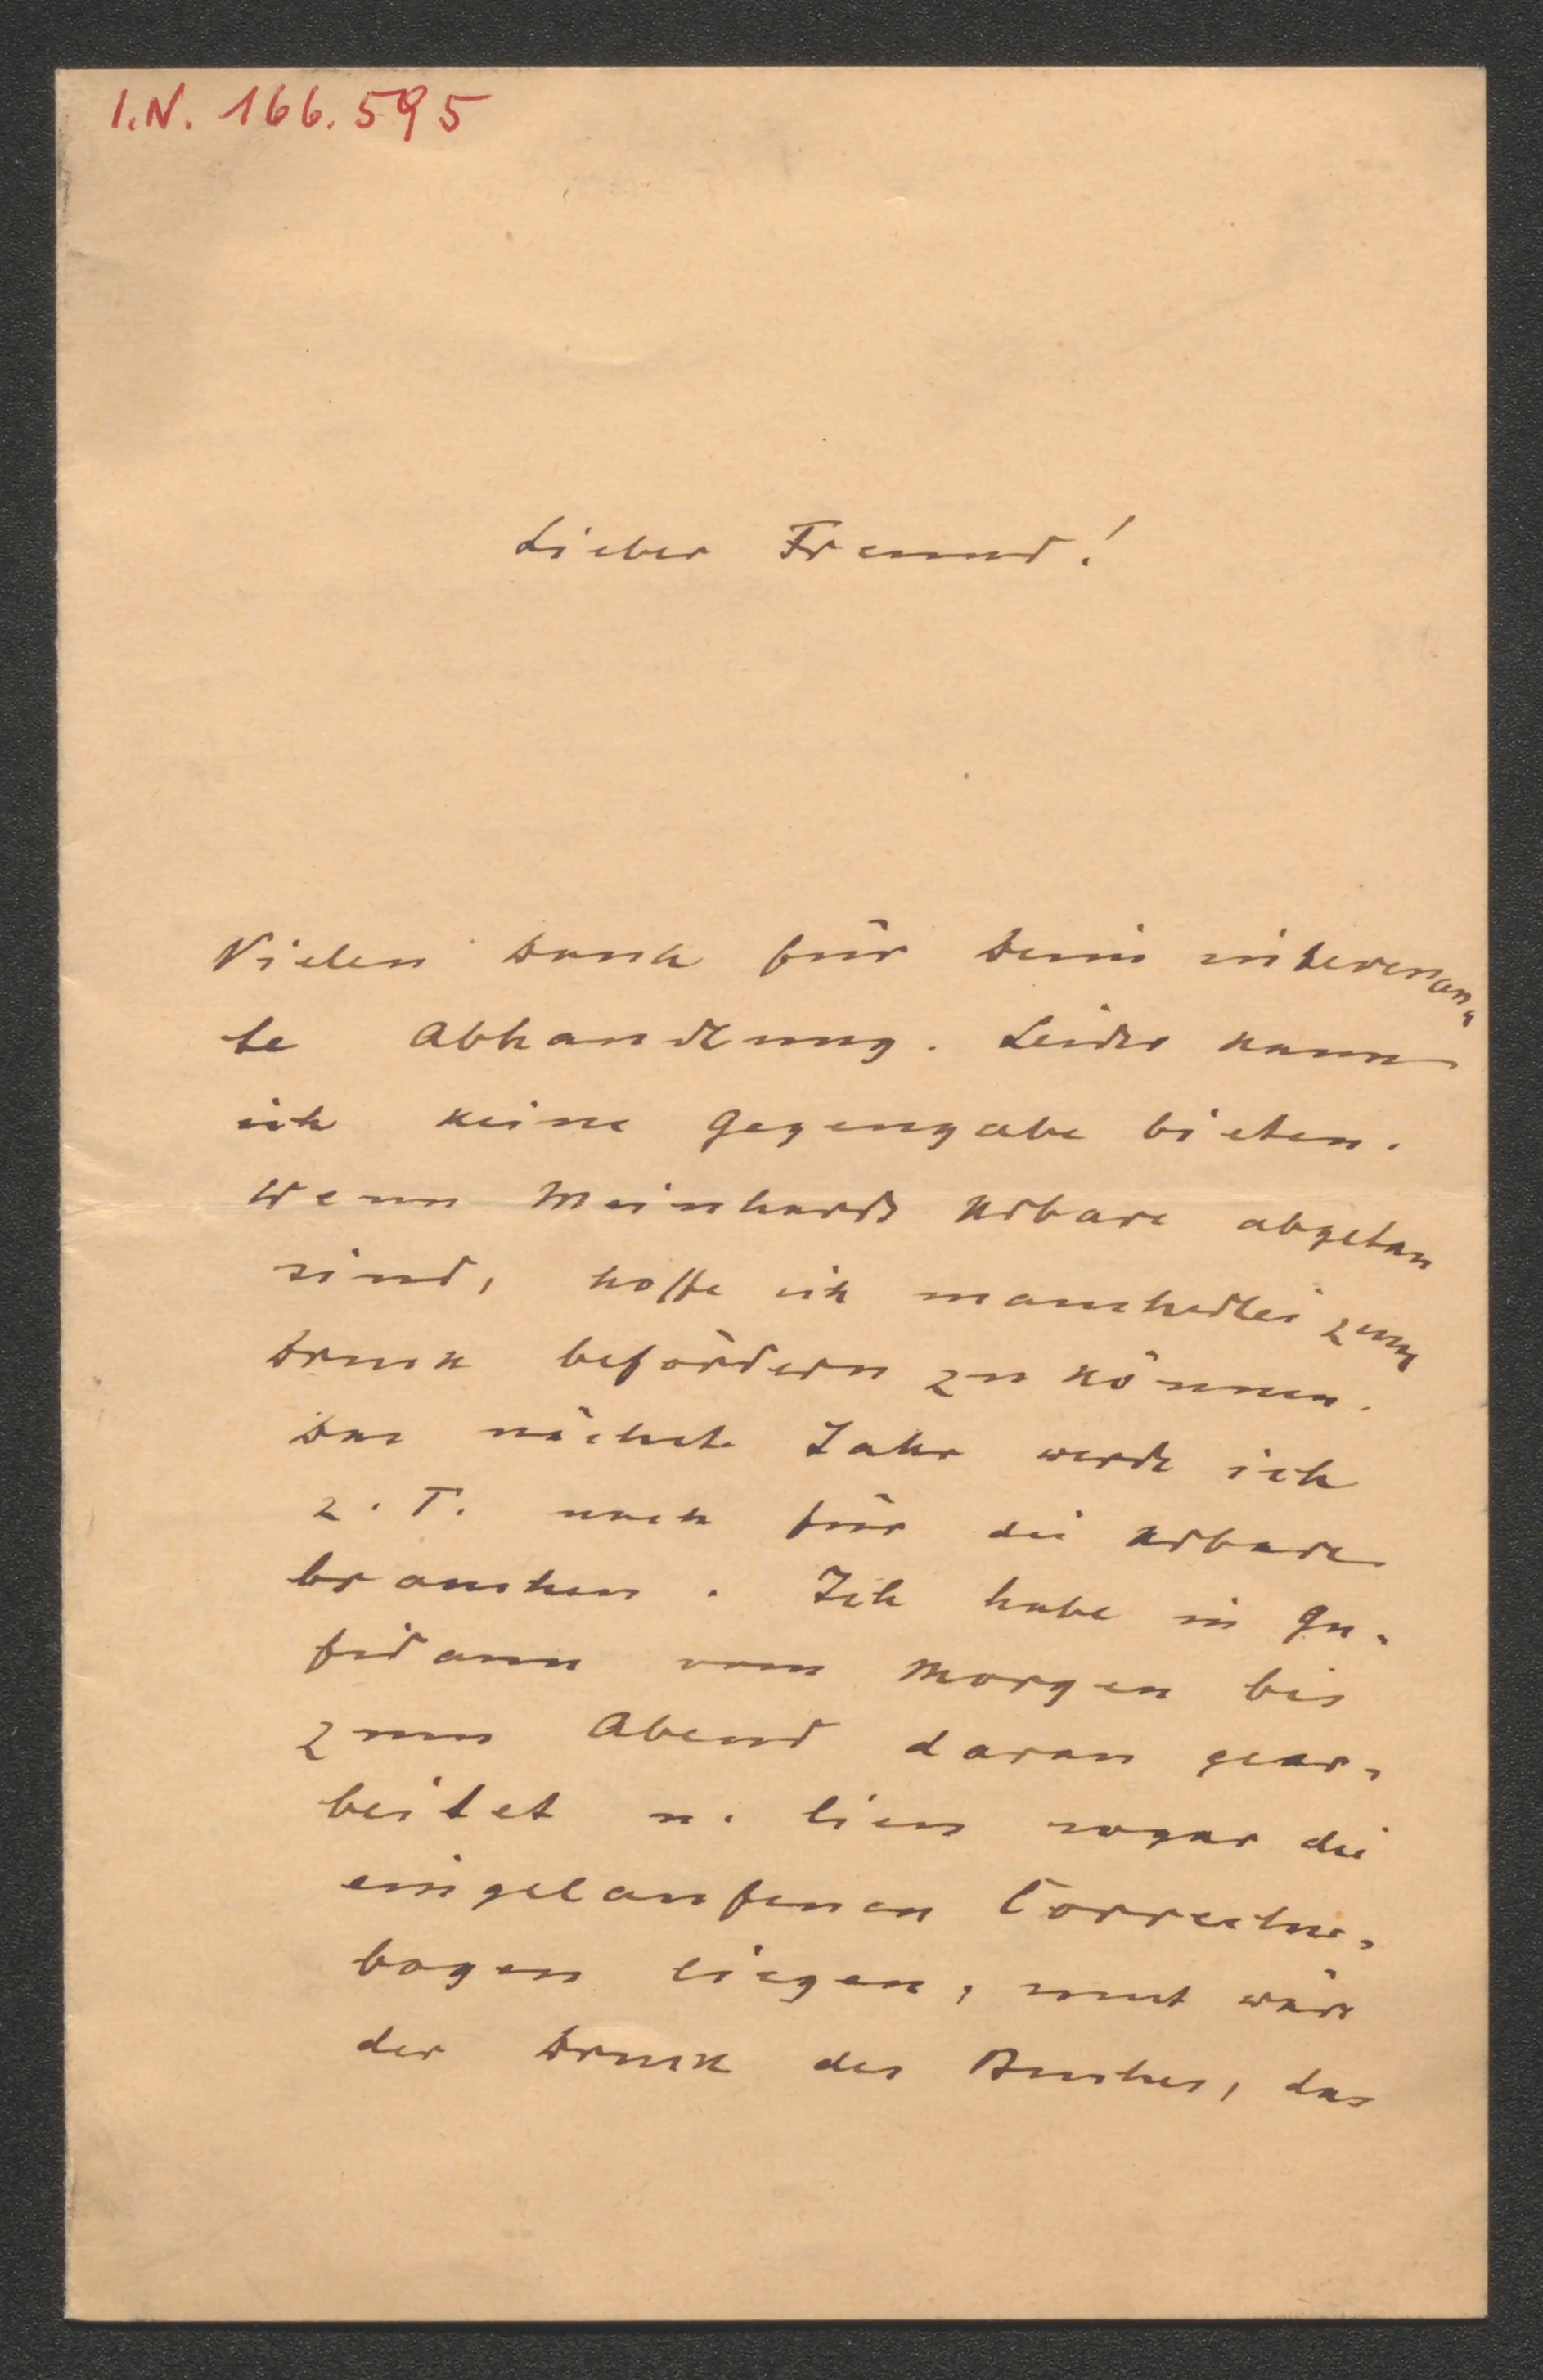 I.N. 166.595
Lieber Freund!
Vielen Dank für Deine interessan-
te Abhandlung. Leider kann
ich keine Gegengabe bieten.
Wenn Meinhards Urbare abgetan
sind, hoffe ich mancherlei zum
Druck befördern zu können.
Das nächste Jahr werde ich
z. T. noch für die Urbare
brauchen. Ich habe in Gu-
fidaun vom Morgen bis
zum Abend daran gear-
beitet u. liess sogar die
eingelaufenen Correctur-
bogen liegen, sonst wäre
der Druck des Buches, das